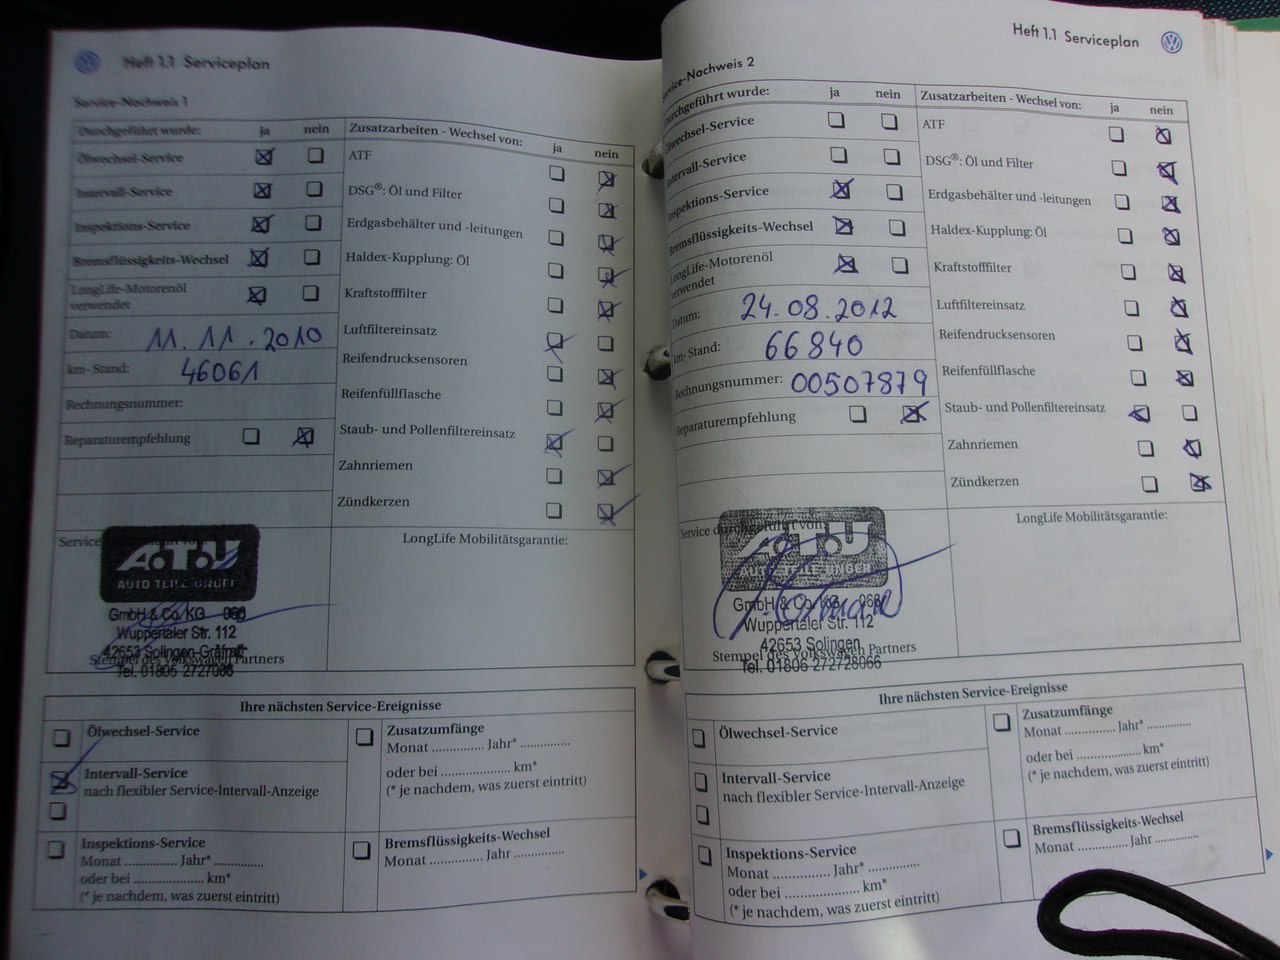 Heft 1.1 Serviceplan
Service-Nachweis 1
Durchgeführt wurde: ja nein
Ölwechsel-Service
Intervall-Service
Inspektions-Service
Bremsflüssigkeits-Wechsel
LongLife-Motorenöl
verwendet
Datum: 11.11.2010
km-Stand: 46061
Rechnungsnummer:
Reparaturempfehlung
Zusatzarbeiten - Wechsel von: ja nein
ATF
DSG®: Öl und Filter
Erdgasbehälter und -leitungen
Haldex-Kupplung: Öl
Kraftstofffilter
Luftfiltereinsatz
Reifendrucksensoren
Reifenfüllflasche
Staub- und Pollenfiltereinsatz
Zahnriemen
Zündkerzen
Service
A.T.U
AUTO TEILE UNGER
GmbH & Co. KG 066
Wuppertaler Str. 112
42653 Solingen-Gräfrath
Stempel des Volkswagen Partners
Tel. 01805 2727066
LongLife Mobilitätsgarantie:
Ihre nächsten Service-Ereignisse
Ölwechsel-Service
Intervall-Service
nach flexibler Service-Intervall-Anzeige
Inspektions-Service
Monat ............. Jahr* .............
oder bei .................. km*
(* je nachdem, was zuerst eintritt)
Zusatzumfänge
Monat ............. Jahr* .............
oder bei .................. km*
(* je nachdem, was zuerst eintritt)
Bremsflüssigkeits-Wechsel
Monat ............. Jahr .............
Heft 1.1 Serviceplan
Service-Nachweis 2
Durchgeführt wurde: ja nein
Ölwechsel-Service
Intervall-Service
Inspektions-Service
Bremsflüssigkeits-Wechsel
LongLife-Motorenöl
verwendet
Datum: 24.08.2012
km-Stand: 66840
Rechnungsnummer: 00507879
Reparaturempfehlung
Zusatzarbeiten - Wechsel von: ja nein
ATF
DSG®: Öl und Filter
Erdgasbehälter und -leitungen
Haldex-Kupplung: Öl
Kraftstofffilter
Luftfiltereinsatz
Reifendrucksensoren
Reifenfüllflasche
Staub- und Pollenfiltereinsatz
Zahnriemen
Zündkerzen
Service durchgeführt von:
A.T.U
AUTO TEILE UNGER
GmbH & Co. KG 066
Wuppertaler Str. 112
42653 Solingen
Stempel des Volkswagen Partners
Tel. 01806 272728066
LongLife Mobilitätsgarantie:
Ihre nächsten Service-Ereignisse
Ölwechsel-Service
Intervall-Service
nach flexibler Service-Intervall-Anzeige
Inspektions-Service
Monat ............. Jahr* .............
oder bei .................. km*
(* je nachdem, was zuerst eintritt)
Zusatzumfänge
Monat ............. Jahr* .............
oder bei .................. km*
(* je nachdem, was zuerst eintritt)
Bremsflüssigkeits-Wechsel
Monat ............. Jahr .............